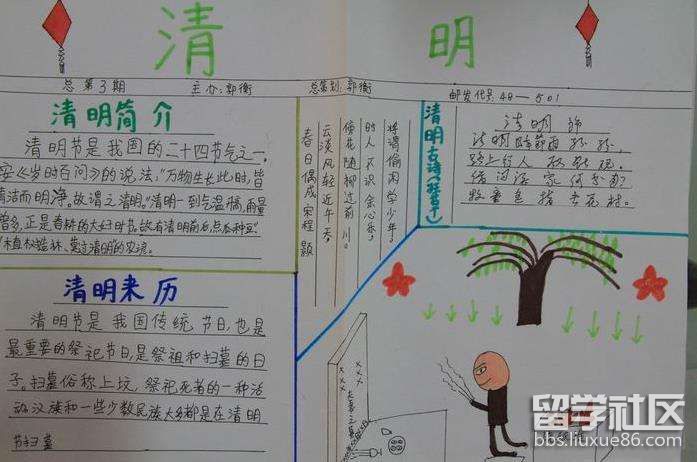 清 明
总第3期 主办:郭衡 总策划:郭衡 邮发代号48—501
清明简介
清明节是我国的二十四节气之一,
《岁时百问》的说法,"万物生长此时,皆
清洁而明净,故谓之清明。"清明一到气温升高,雨量
增多,正是春耕的大好时节。故有"清明前后,点瓜种豆"
清明来历
清明节是我国传统节日,也是
最重要的祭祀节日,是祭祖和扫墓的日
子。扫墓俗称上坟,祭祀死者的一种活
动汉族和一些少数民族大都是在清明
节扫墓
春日偶成 宋程颢
云淡风轻近午天,
傍花随柳过前川。
时人不识余心乐,
将谓偷闲学少年。
清明古诗
清明
清明时节雨纷纷,
路上行人欲断魂。
牧童遥指杏花村。
留学社区
bbs.liuxue86.com